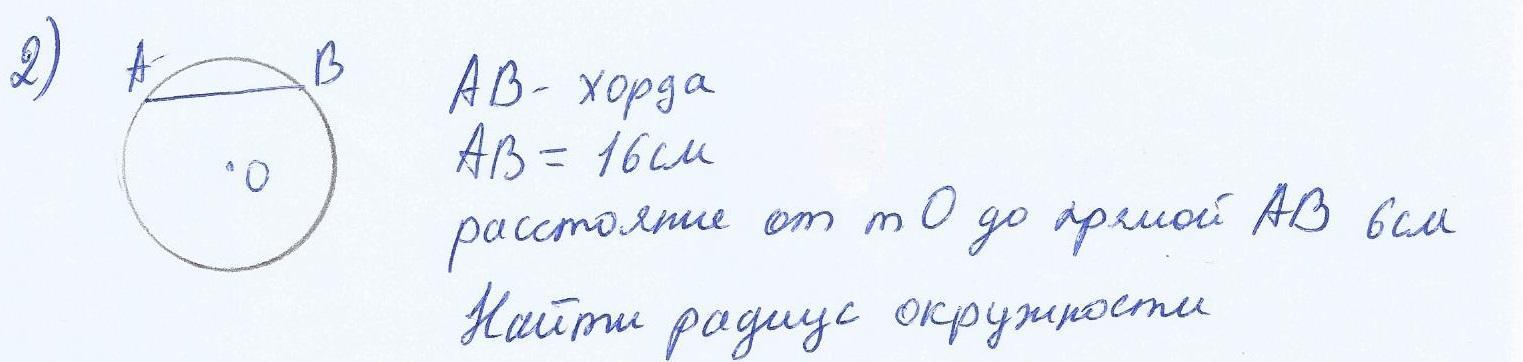 2)
A B
O
AB - хорда
AB = 16 см
расстояние от т O до прямой AB 6 см
Найти радиус окружности